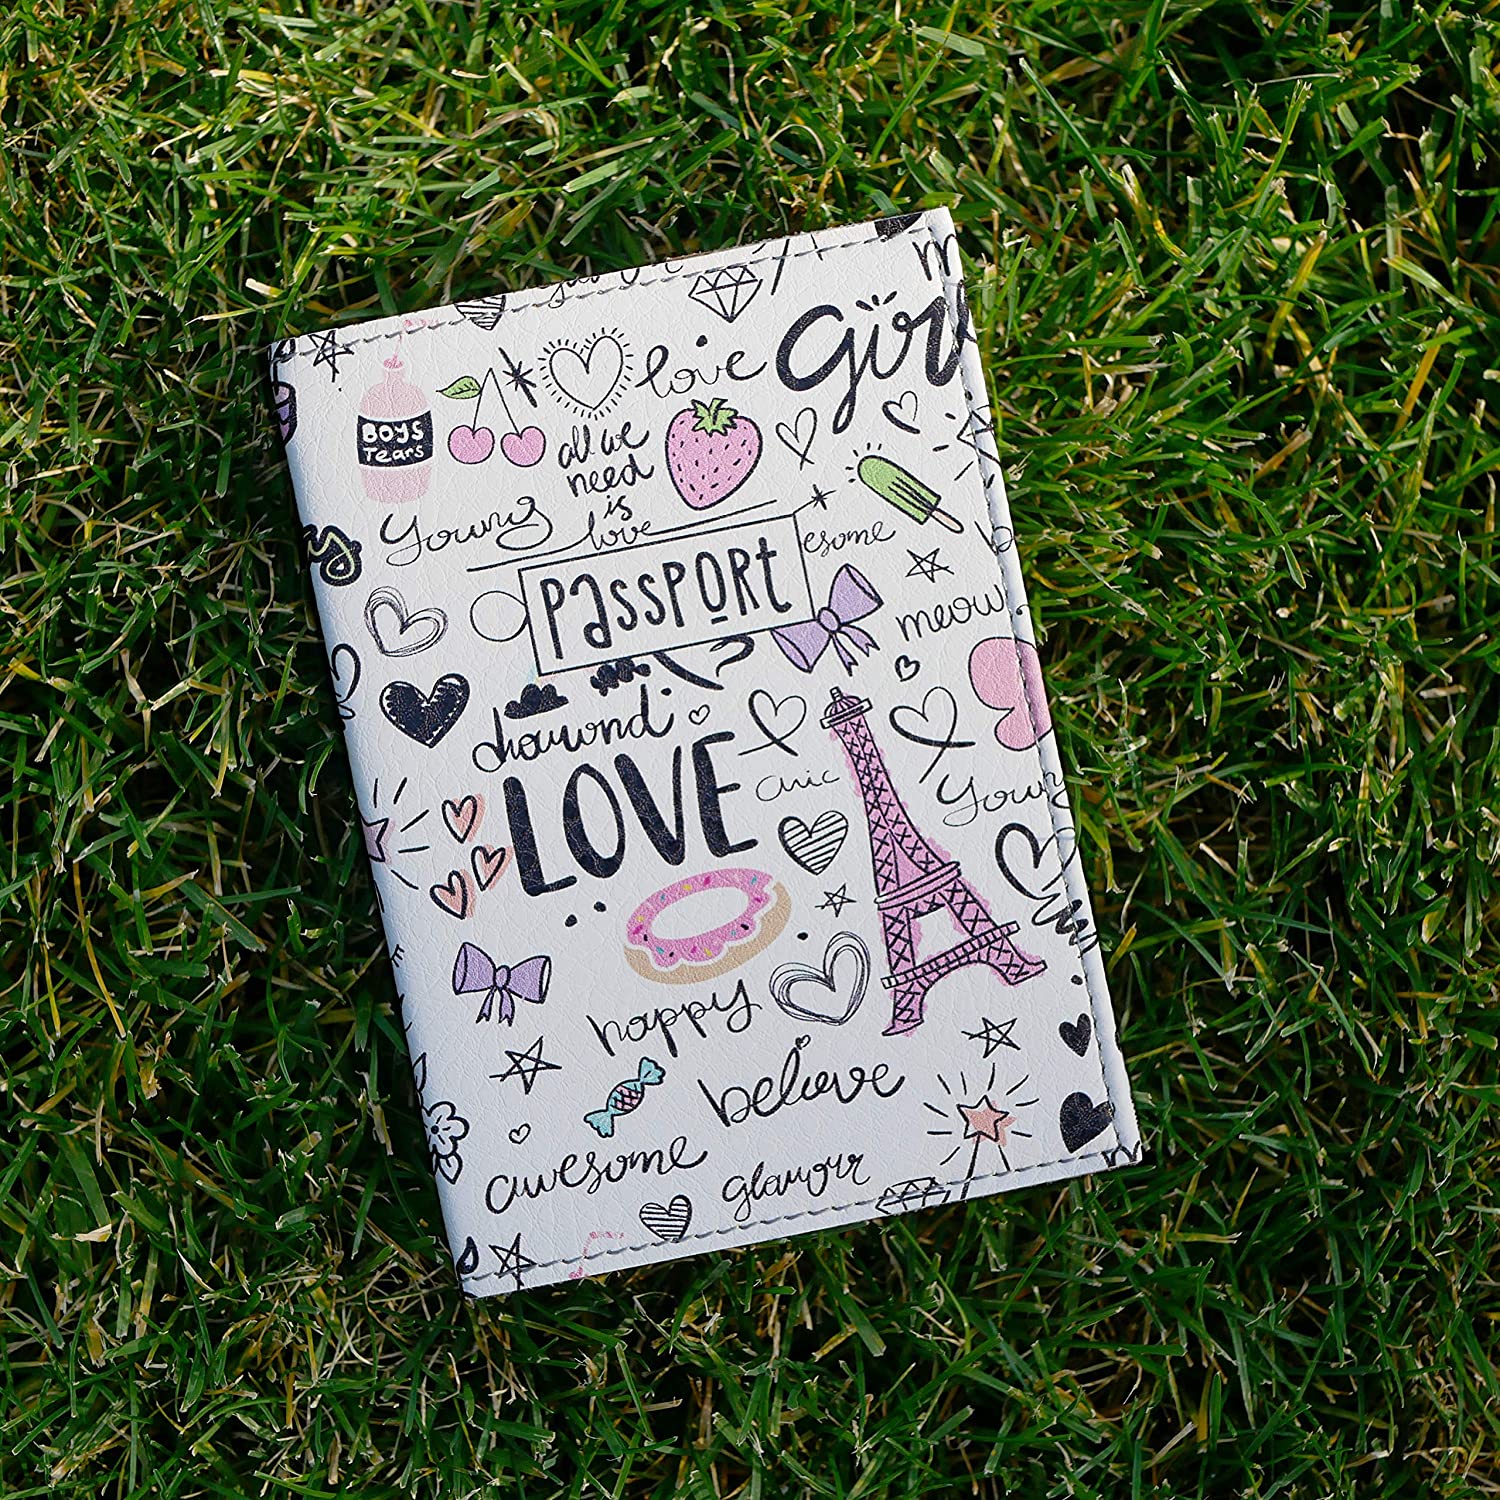 love
girl
Boys
Tears
all we
need
is
love
Young
esome
PASSPORT
meow
diamond
LOVE
chic
Young
happy
believe
awesome
glamour